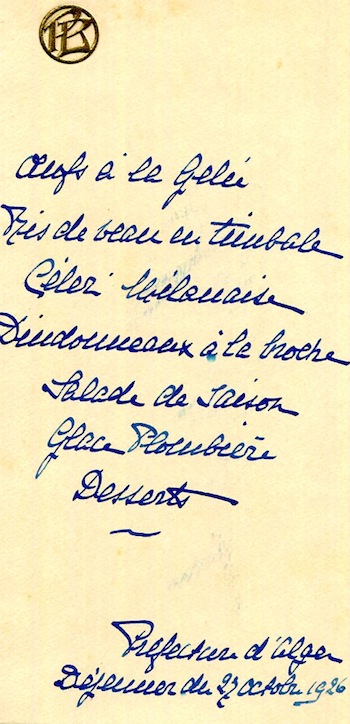 Œufs à la Gelée
Ris de veau en timbale
Céleri Milanaise
Dindonneaux à la broche
Salade de Saison
Glace Plombière
Desserts
Préfecture d'Alger
Déjeuner du 27 octobre 1926